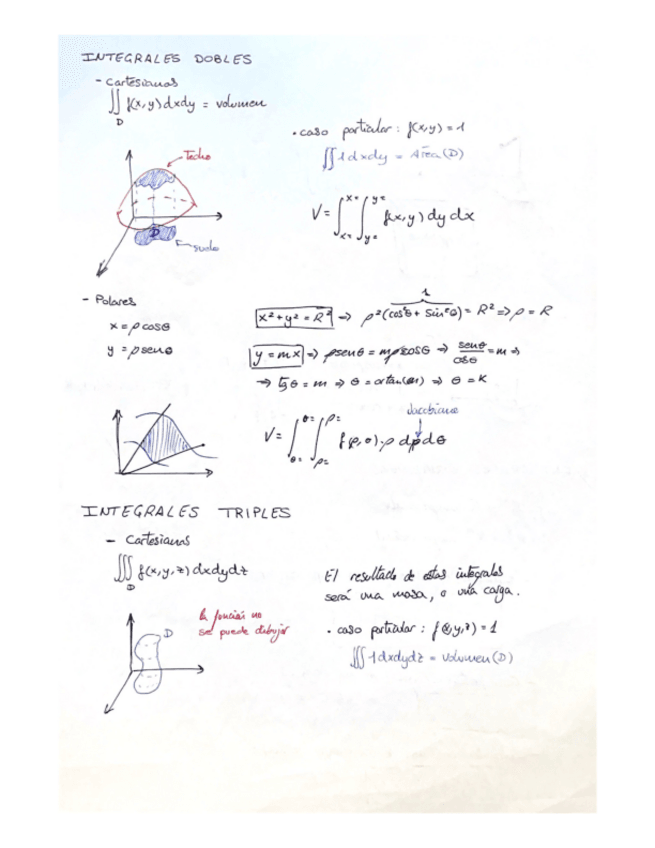 INTEGRALES DOBLES
- Cartesianas
∬ f(x,y) dxdy = volumen
D
• caso particular: f(x,y) = 1
∬ 1 dxdy = Área (D)
Techo
D
suelo
V = ∫ x= x= ∫ y= y= f(x,y) dy dx
- Polares
x = ρ cosθ
y = ρ senθ
1
x² + y² = R² ⇒ ρ² (cos²θ + sin²θ) = R² ⇒ ρ = R
y = mx ⇒ ρsenθ = mρcosθ ⇒ senθ/cosθ = m ⇒
⇒ tgθ = m ⇒ θ = artan(m) ⇒ θ = K
Jacobiano
V = ∫ θ= θ= ∫ ρ= ρ= f(ρ,θ)·ρ dρdθ
INTEGRALES TRIPLES
- Cartesianas
∭ f(x,y,z) dxdydz
D
El resultado de estas integrales
será una masa, o una carga.
la función no
se puede dibujar
D
• caso particular: f(x,y,z) = 1
∭ 1 dxdydz = volumen (D)